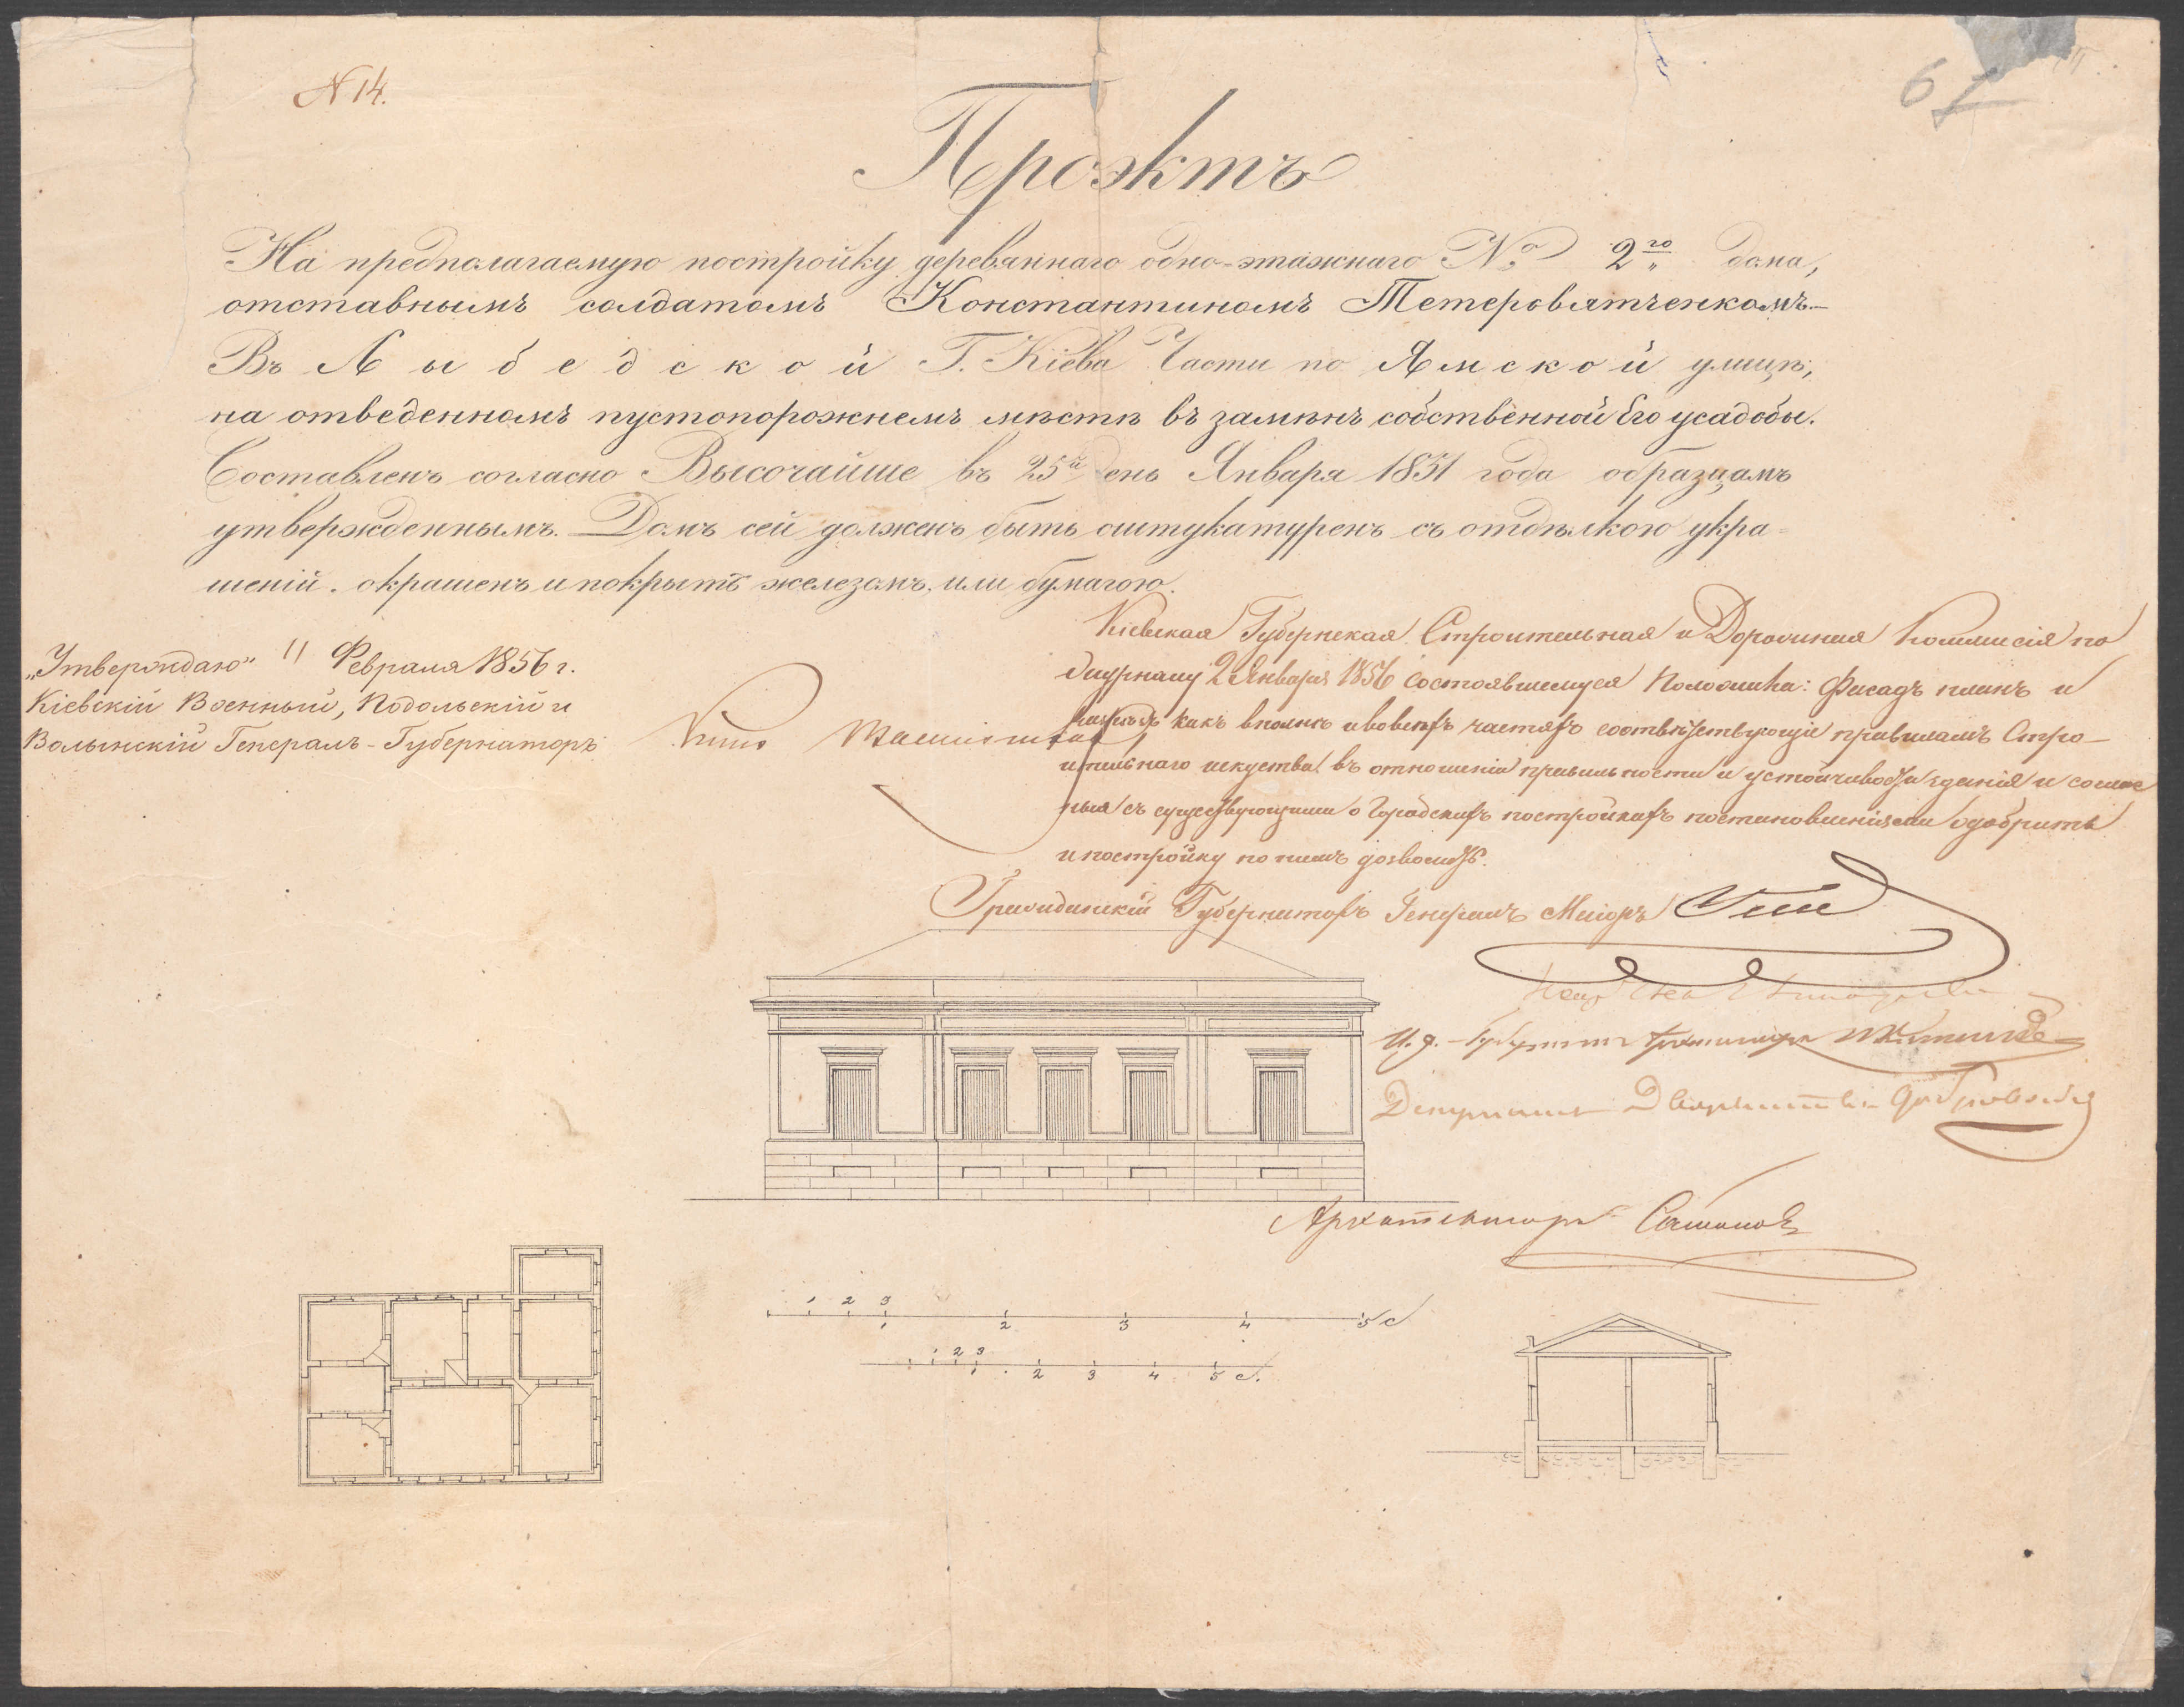 N 14.
61
Проэктъ
На предполагаемую постройку деревяннаго одно-этажнаго № 2го дома,
отставнымъ солдатомъ Константиномъ Тетеровятченкомъ.–
Въ Лыбедской Г. Кіева Части по Ямской улицѣ,
на отведенномъ пустопорожнемъ мѣстѣ въ замѣнъ собственной Его усадобы.
Составленъ согласно Высочайше въ 25й день Января 1851 года образцамъ
утвержденнымъ. Домъ сей долженъ быть оштукатуренъ съ отдѣлкою укра-
шеній. окрашенъ и покрытъ железомъ, или бумагою.
Кіевская Губернская Строительная и Дорожная Коммисія по
Журналу 2 Января 1856 состоявшемуся Положила: Фасадъ планъ и
разрѣзъ какъ вполнѣ и во всѣхъ частяхъ соотвѣтствующіе правиламъ Стро-
ительнаго искуства въ отношеніи правильности и устойчивости зданія и соглас
ныя съ существующими о Городскихъ постройкахъ постановленіями одобрить
и постройку по нимъ дозволить.
„Утверждаю" 11 Февраля 1856 г.
Кіевскій Военный, Подольскій и
Волынскій Генералъ-Губернаторъ
Князь Васильчиковъ
Гражданскій Губернаторъ Генералъ Маіоръ Гессе
И. д. Губернск. Архитектора
Депутатъ Дворянства
Архитекторъ
1 2 3
1 2 3 4 5 с
1 2 3
1 2 3 4 5 с.